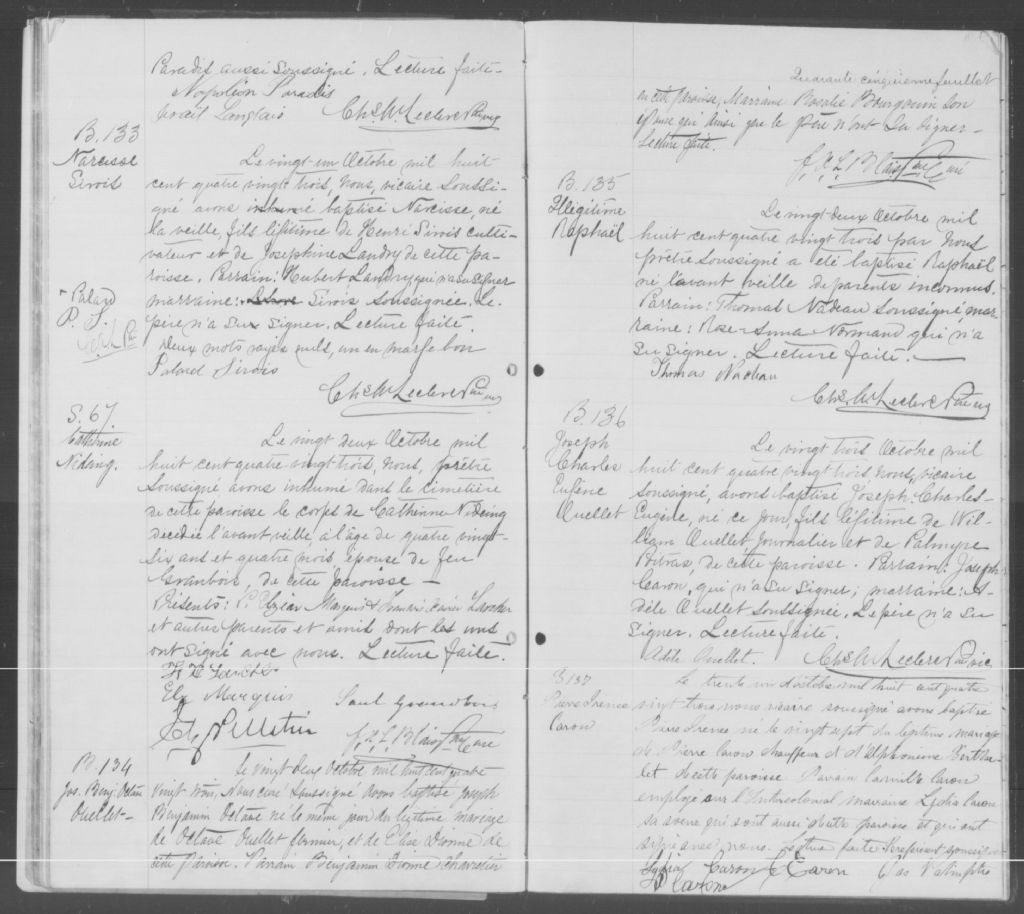 Paradis aussi soussigné. Lecture faite.
Napoléon Paradis
Langlais Chs. W. Leclerc Ptre vic
B. 133
Narcisse
Sirois
Le vingt-un Octobre mil huit
cent quatre vingt trois, nous, vicaire soussi-
gné avons inhumé baptisé Narcisse, né
la veille, fils légitime de Henri Sirois culti-
vateur et de Josephine Landry de cette pa-
roisse. Parrain: Hubert Landry qui n'a su signer
marraine: Sirois soussignée. Le
père n'a su signer. Lecture faite.
Deux mots rayés nuls, un en marge bon
Palard Sirois
Palard
P. S.
Chs. W. Leclerc Ptre vic
S. 67.
Catherine
Nideing.
Le vingt deux Octobre mil
huit cent quatre vingt trois, nous, prêtre
soussigné avons inhumé dans le cimetière
de cette paroisse le corps de Catherine Nideing
décédée l'avant veille, à l'âge de quatre vingt-
six ans et quatre mois, épouse de feu
Granbois, de cette paroisse —
Présents: Elzéar Marquis & Xavier
et autres parents et amis dont les uns
ont signé avec nous. Lecture faite.
Elz Marquis
Pelletier
Ptre Curé
B. 134
Jos. Benj. Octave
Ouellet
Le vingt deux Octobre mil huit cent quatre
vingt trois, Nous curé soussigné avons baptisé Joseph
Benjamin Octave né le même jour du légitime mariage
de Octave Ouellet fermier, et de Elise Dionne de
cette Paroisse. Parrain Benjamin Dionne charretier
Quarante cinquième feuillet
en cette paroisse, Marraine Rosalie Bourgouin son
épouse qui ainsi que le père n'ont su signer.
Lecture faite.
Ptre Curé
B. 135
Illégitime
Raphaël
Le vingt-deux Octobre mil
huit cent quatre vingt trois par nous
prêtre soussigné a été baptisé Raphaël
né l'avant veille de parents inconnus.
Parrain: Thomas Nadeau soussigné mar-
raine: Rose-Anna Normand qui n'a
su signer. Lecture faite. —
Thomas Nadeau
Chs. W. Leclerc Ptre vic
B. 136
Joseph
Charles
Eugène
Ouellet
Le vingt trois Octobre mil
huit cent quatre vingt trois, nous, vicaire
soussigné, avons baptisé Joseph-Charles-
Eugène, né ce jour, fils légitime de Wil-
liam Ouellet journalier et de Palmyre
Poitras, de cette paroisse. Parrain: Joseph
Caron, qui n'a su signer; marraine: A-
dèle Ouellet soussignée. Le père n'a su
signer. Lecture faite.
Adèle Ouellet. Chs. W. Leclerc Ptre vic
B 137
Pierre Irénée
Caron
Le trente un d'octobre mil huit cent quatre
vingt trois nous vicaire soussigné avons baptisé
Pierre Irénée né le vingt sept du légitime mariage
de Pierre Caron chauffeur et d'Alphonsine
de cette paroisse Parrain Camille Caron
employé sur l'Intercolonial marraine Lydia Caron
sa soeur qui sont aussi de cette paroisse et qui ont
signé avec nous lecture faite le père aussi soussigné
Lydia Caron C Caron
P Caron